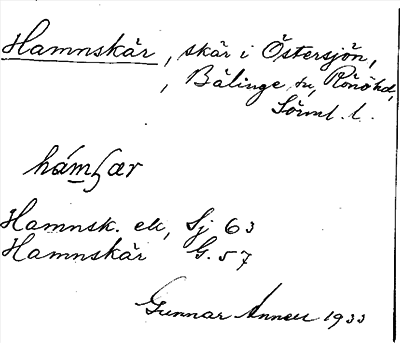 Hamnskär, skär i Östersjön,
, Bälinge sn, Rönö hd,
Sörml. l.
hámʃær
Hamnsk. ek, Sj 63
Hamnskär G. 57
Gunnar Anneu 1933